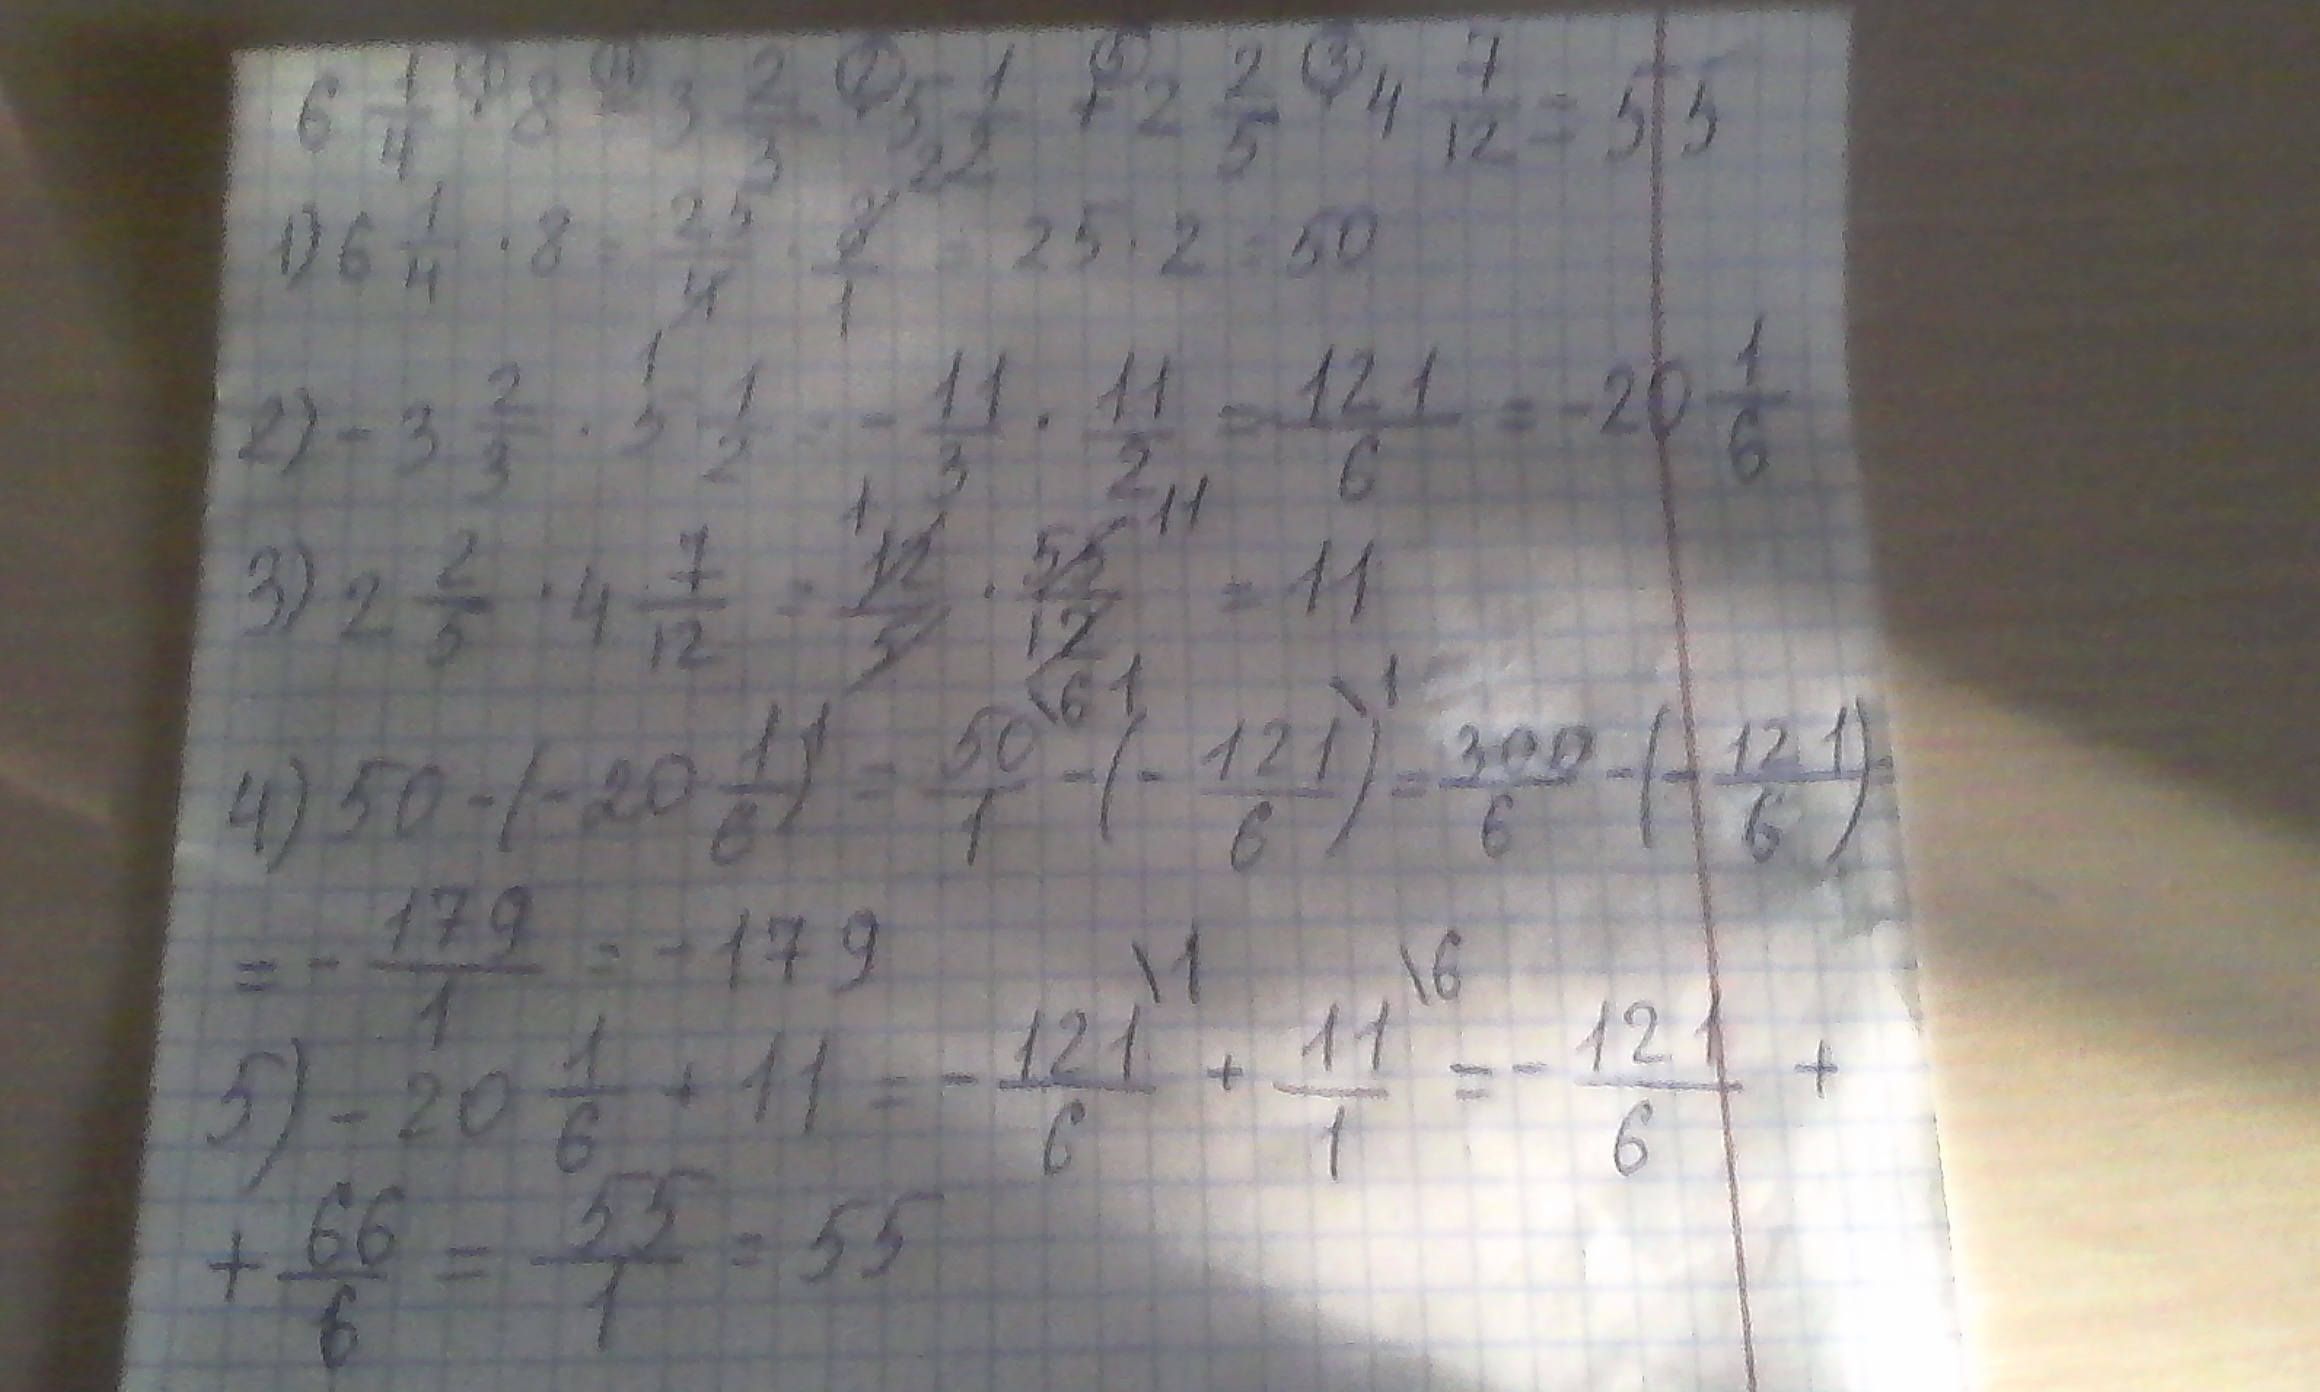 6 1/4 ·① 8 -④ 3 2/3 ·② 5 1/2 +⑤ 2 2/5 ·③ 4 7/12 = 55
1) 6 1/4 · 8 = 25/4 · 8/1 = 25 · 2 = 50
2) - 3 2/3 · 5 1/2 = - 11/3 · 11/2 = - 121/6 = - 20 1/6
3) 2 2/5 · 4 7/12 = 12/5 · 55/12 = 11
4) 50 - (- 20 1/6) = 50/1 \6 - (- 121/6) \1 = 300/6 - (- 121/6) =
= - 179/1 = - 179
5) - 20 1/6 + 11 = - 121/6 \1 + 11/1 \6 = - 121/6 +
+ 66/6 = 55/1 = 55